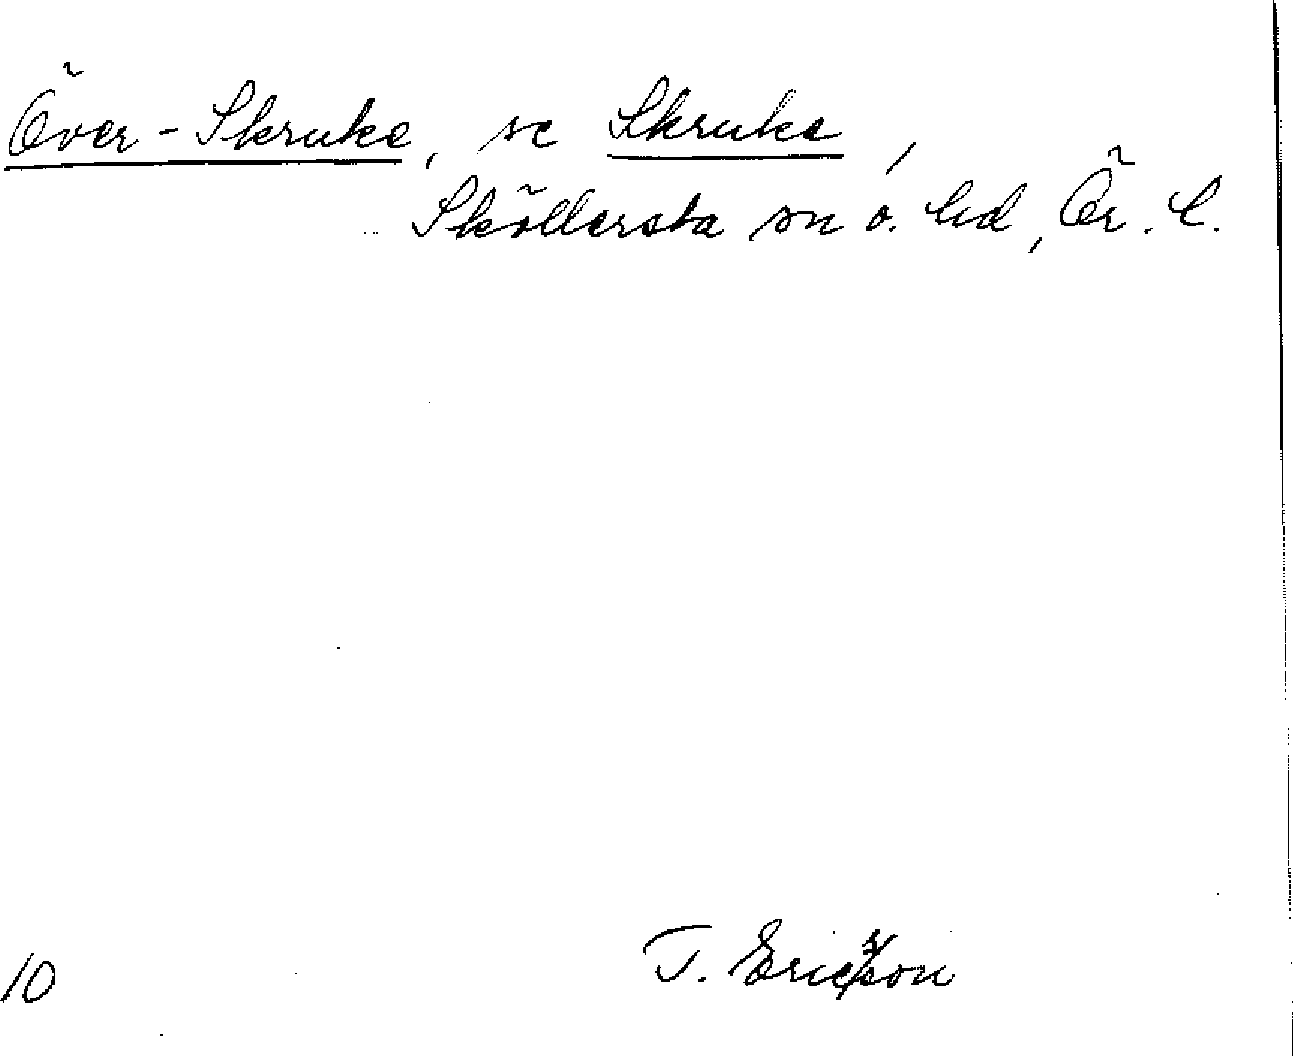 Över-Skruke, se Skruke,
Sköllersta sn o. hd, Ör. l.
10
T. Ericsson